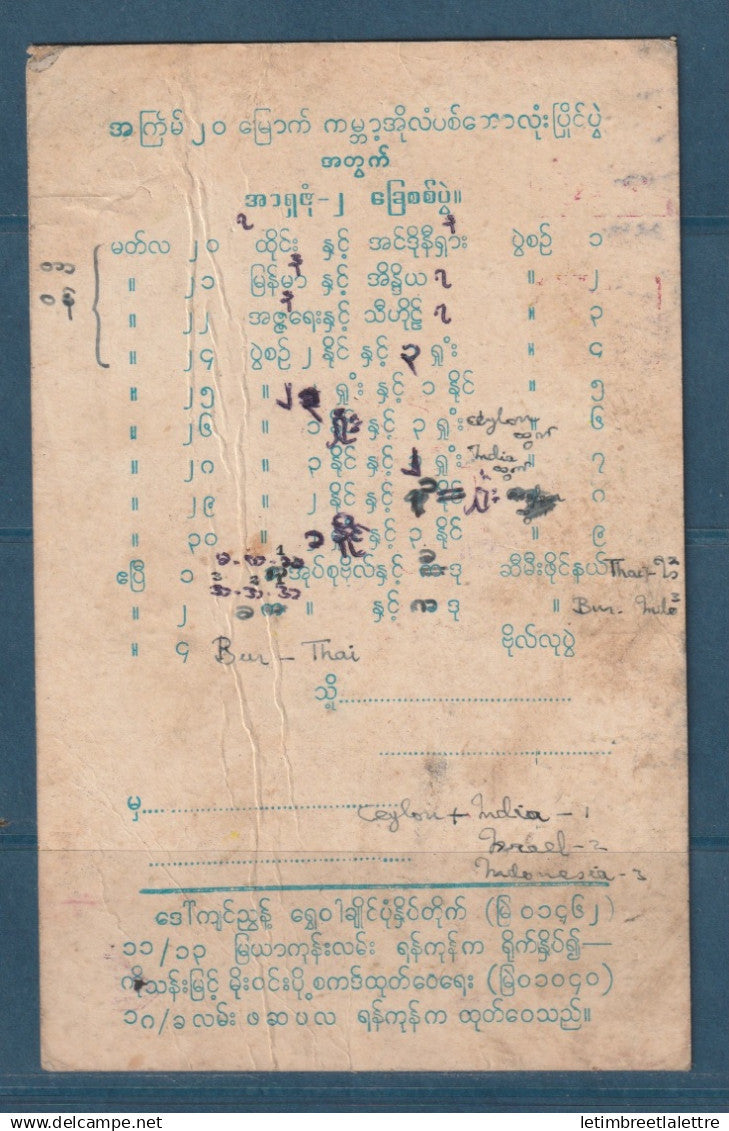 အကြိမ် ၂၀ မြောက် ကမ္ဘာ့အိုလံပစ်ဘောလုံးပြိုင်ပွဲ
အတွက်
အာရှဇုံ-၂ ခြေစစ်ပွဲ။
မတ်လ ၂၀ ထိုင်း နှင့် အင်ဒိုနီရှား ပွဲစဉ် ၁
။ ၂၁ မြန်မာ နှင့် အိန္ဒိယ ။ ၂
။ ၂၂ အစ္စရေးနှင့် သီဟိုဠ် ။ ၃
။ ၂၄ ပွဲစဉ် ၂ နိုင် နှင့် ၃ ရှုံး ။ ၄
။ ၂၅ ။ ၂ ရှုံး နှင့် ၁ နိုင် ။ ၅
။ ၂၆ ။ ၁ ရှုံး နှင့် ၃ ရှုံး Ceylon ထွက် ။ ၆
။ ၂၇ ။ ၃ နိုင် နှင့် ၂ ရှုံး India ထွက် ။ ၇
။ ၂၉ ။ ၂ နိုင် နှင့် ရှုံး ။ ၈
။ ၃၀ ။ ၁ နိုင် နှင့် ၃ နိုင် ။ ၉
ဧပြီ ၁ အုပ်စုဗိုလ်နှင့် ဒု ဆီမီးဖိုင်နယ် Thai-
။ ၂ ခ ။ နှင့် က ဒု ။ Bur- Indo
။ ၄ Bur - Thai ဗိုလ်လုပွဲ
သို့
မှ
Ceylon + India - 1
Israel - 2
Indonesia - 3
ဒေါ်ကျင်ညွန့် ရွှေဝါချိုင်ပုံနှိပ်တိုက် (မြဲ ၀၁၄၆၂)
၁၁/၁၃ မြယာကုန်းလမ်း ရန်ကုန်က ရိုက်နှိပ်၍—
ကိုသန်းမြင့် မိုးဝင်းပို့စကဒ်ထုတ်ဝေရေး (မြဲ၀၁၀၄၀)
၁၈/ခ လမ်း ဖ ဆ ပ လ ရန်ကုန်က ထုတ်ဝေသည်။
delcampe.net
letimbreetlalettre